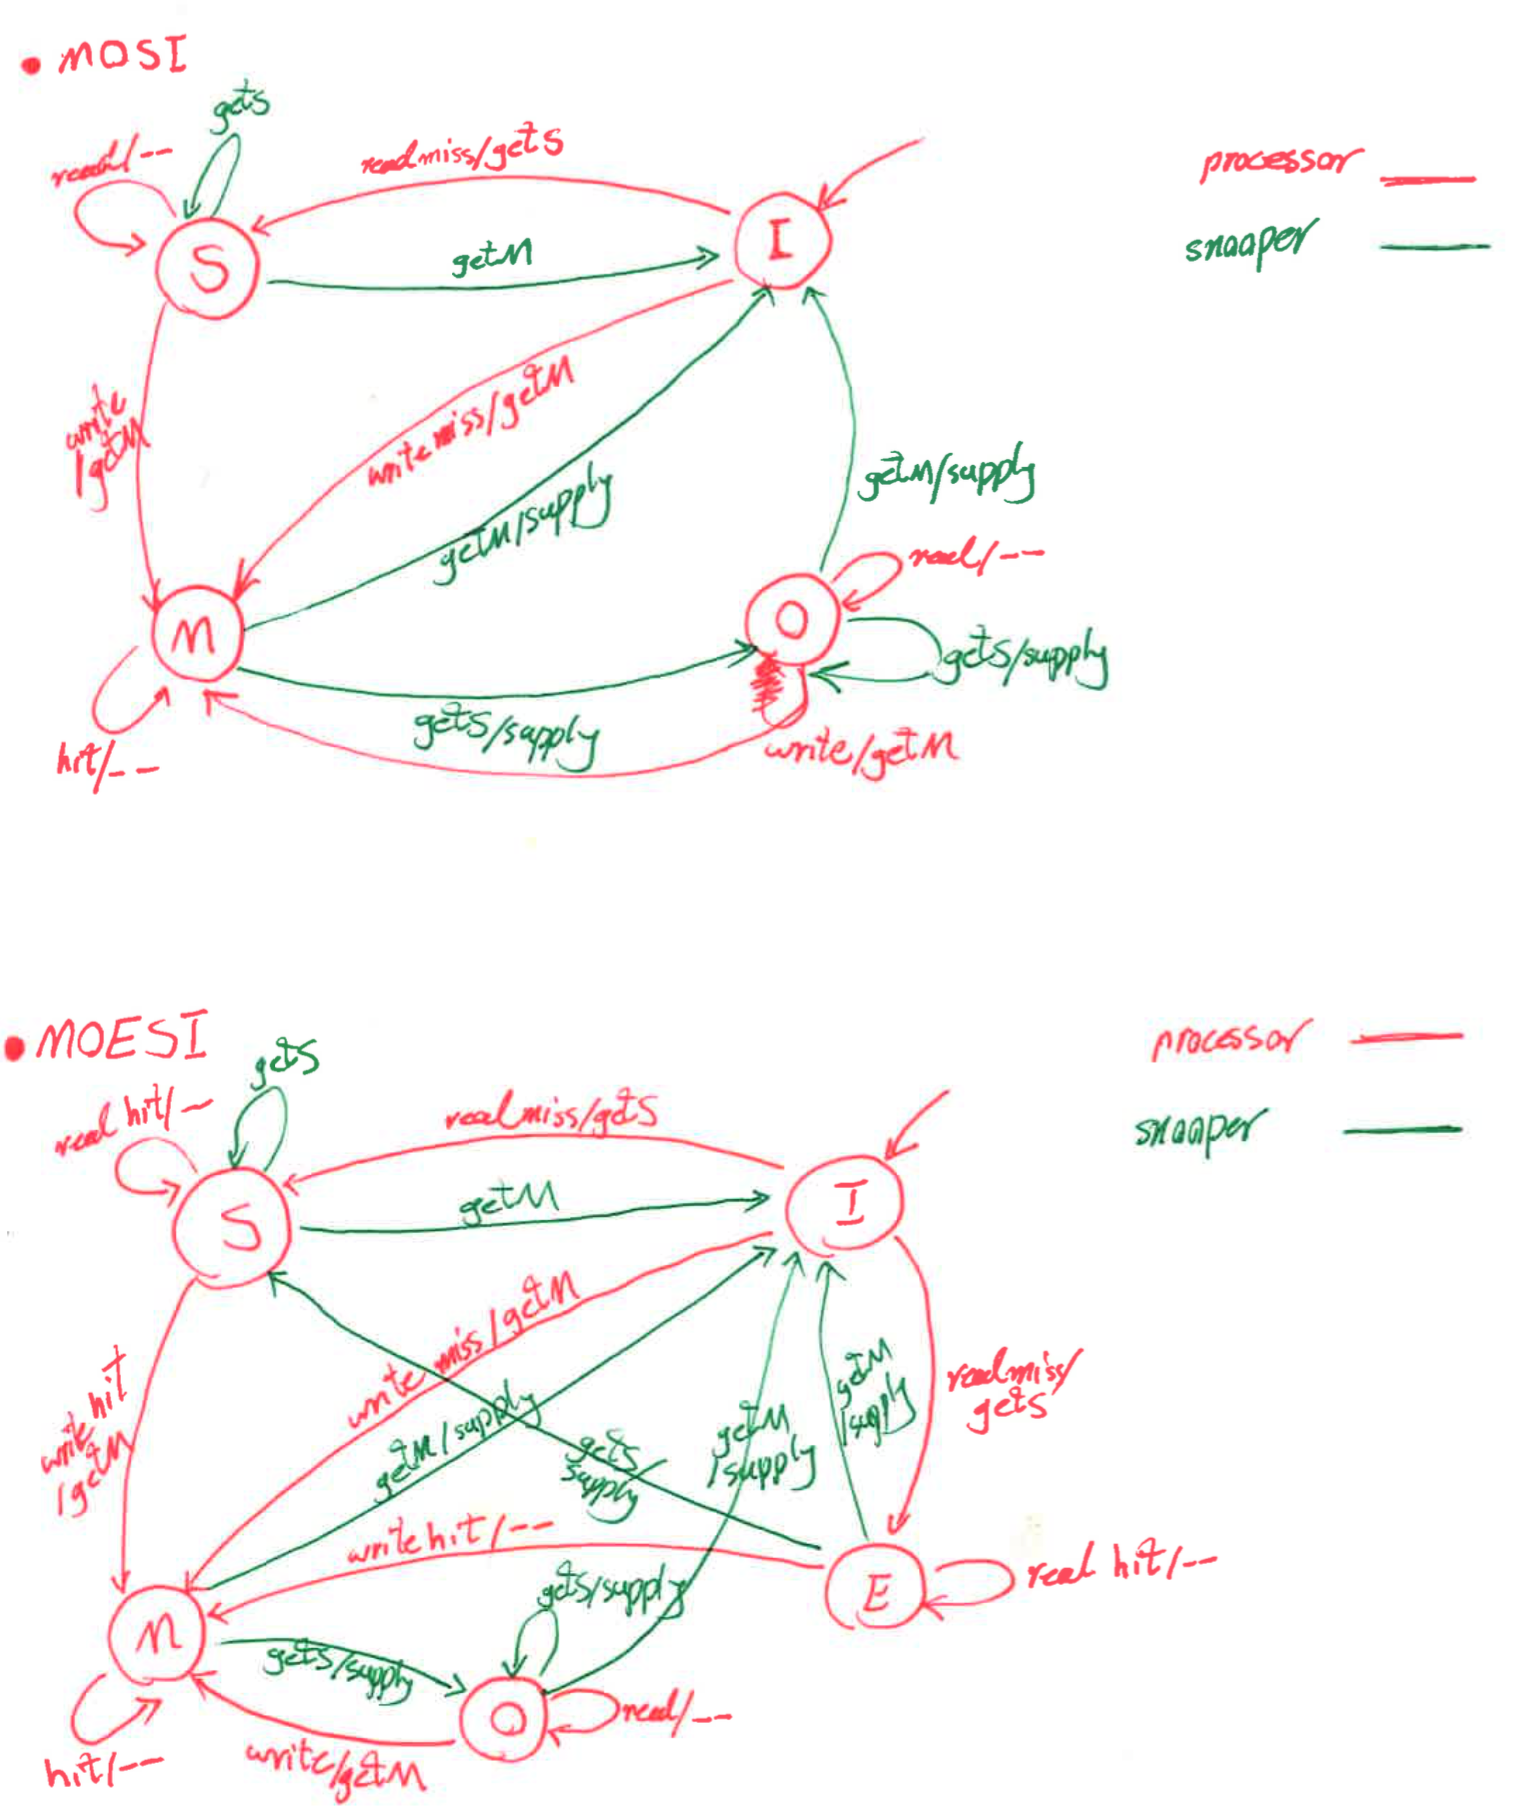 • MOSI
gets
read/--
readmiss/getS
processor
snooper
S
I
getM
write
/getM
write miss/getM
getM/supply
getM/supply
read/--
M
O
getS/supply
getS/supply
hit/--
write/getM
• MOESI
getS
processor
read hit/--
readmiss/getS
snooper
S
I
getM
write miss/getM
write hit
/getM
getM/supply
getS/
supply
getM
/supply
getM
/supply
readmiss/
getS
write hit/--
E
read hit/--
getS/supply
M
getS/supply
O
read/--
hit/--
write/getM